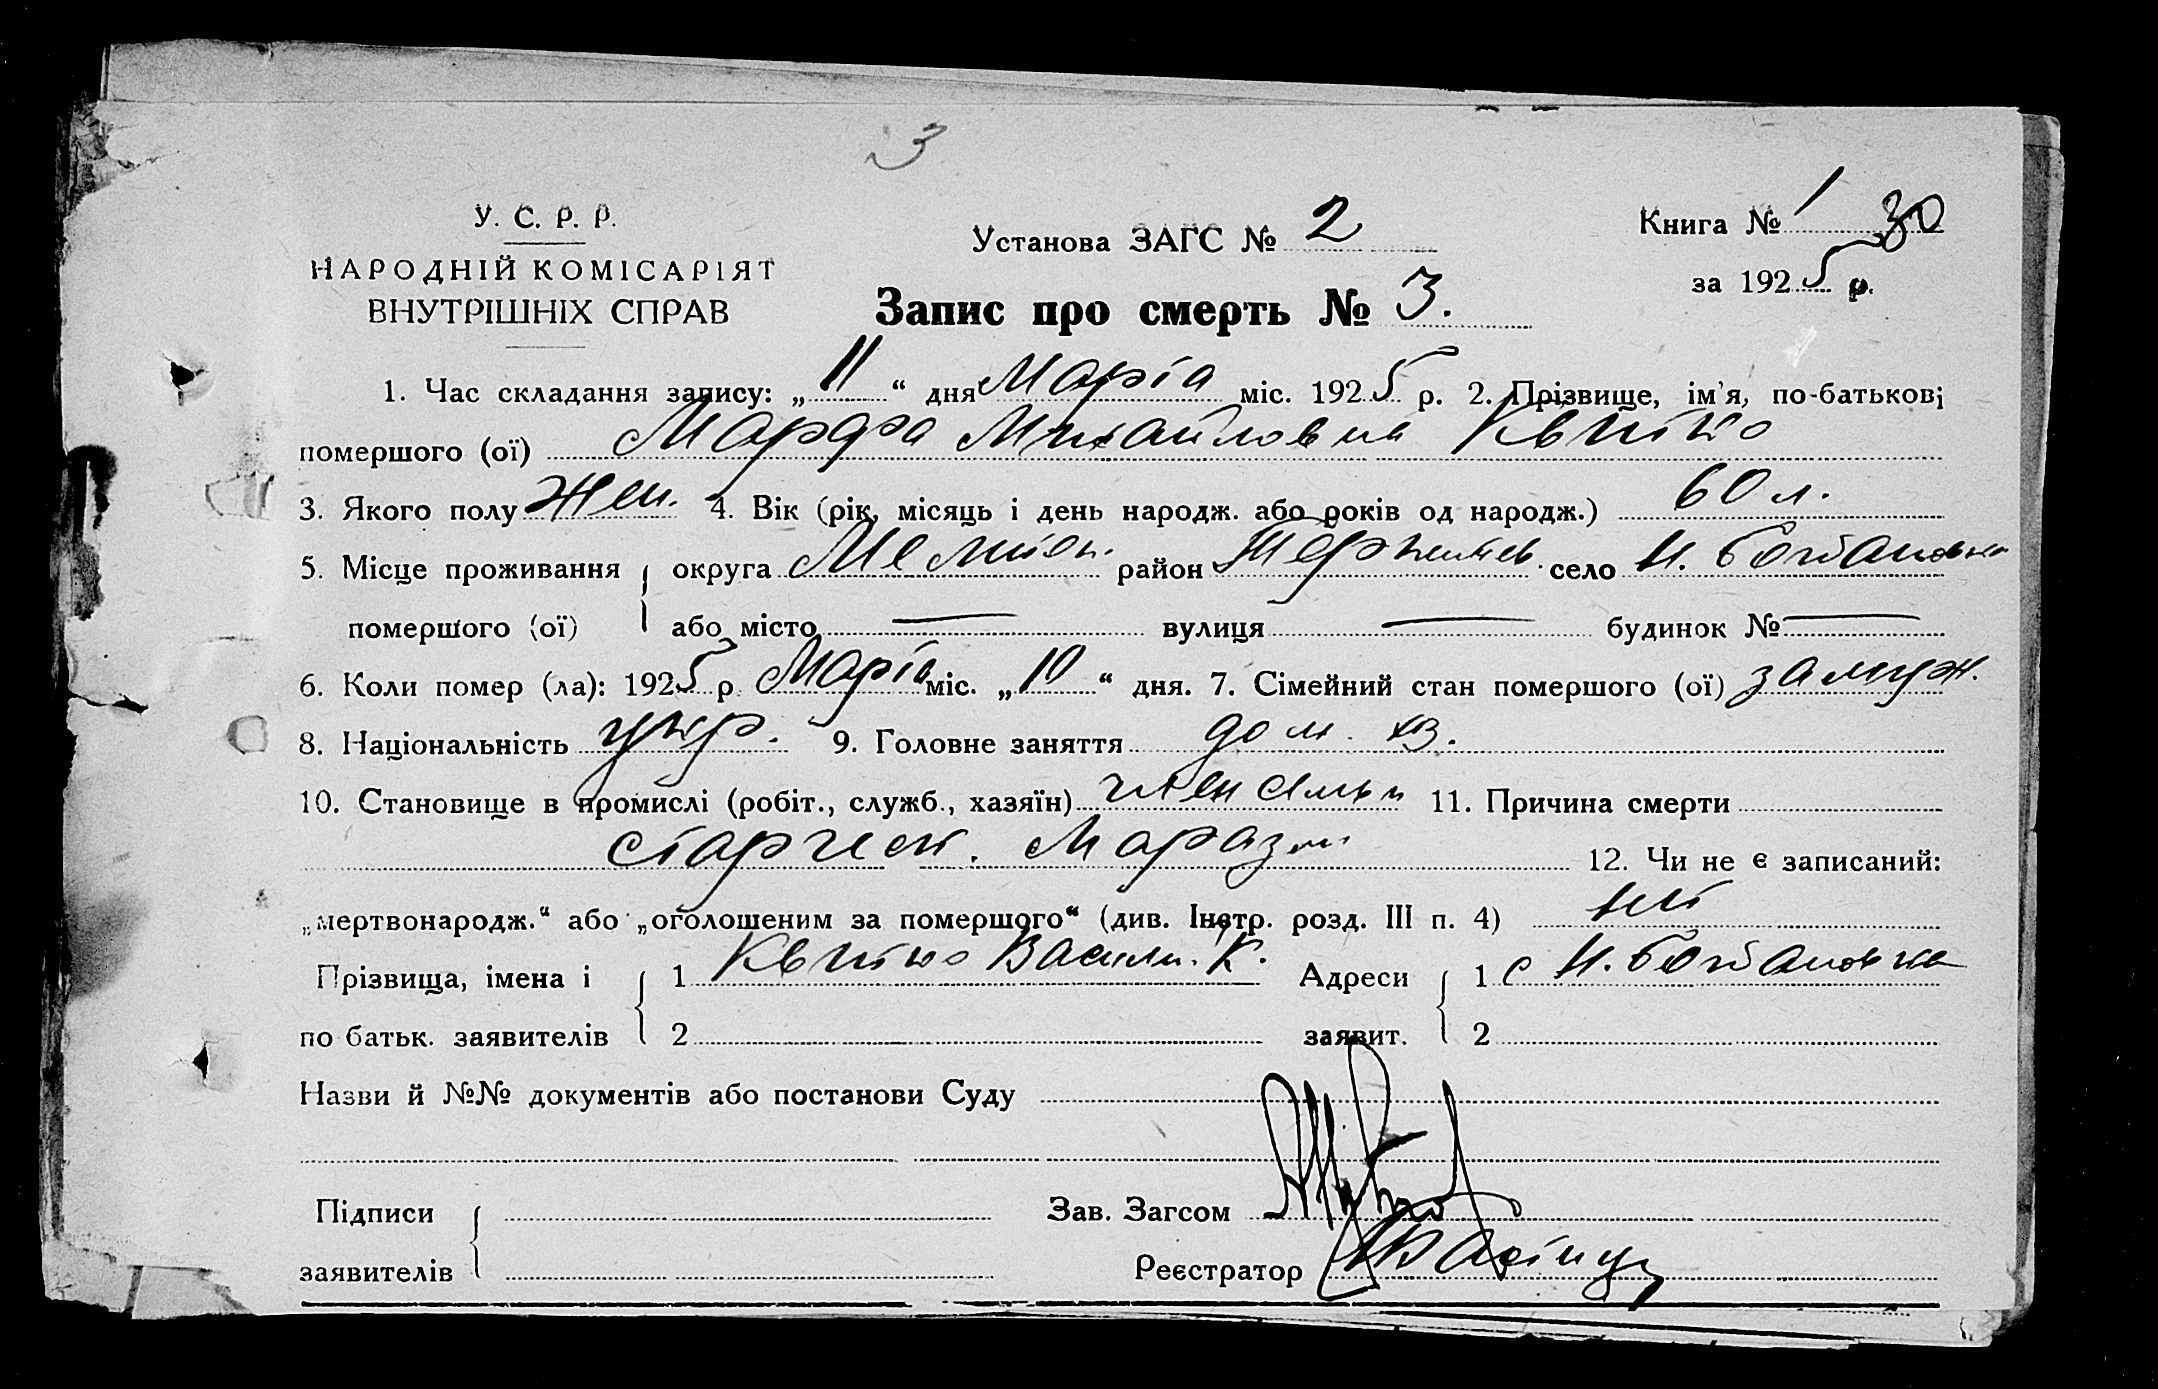 3
У. С. Р. Р.
НАРОДНІЙ КОМІСАРІЯТ
ВНУТРІШНІХ СПРАВ
Установа ЗАГС № 2
Запис про смерть № 3.
Книга № 1 30
за 1925 р.
1. Час складання запису: „ 11 “ дня Марта міс. 1925 р. 2. Прізвище, ім'я, по-батькові
помершого (ої) Марфа Михайловна Квитко
3. Якого полу жен. 4. Вік (рік, місяць і день народж. або років од народж.) 60 л.
5. Місце проживання округа Мелитоп. район село Н. Богдановка
помершого (ої) або місто — вулиця — будинок № —
6. Коли помер (ла): 1925 р. Марта міс. „ 10 “ дня. 7. Сімейний стан помершого (ої) замуж.
8. Національність укр. 9. Головне заняття дом. хоз.
10. Становище в промислі (робіт., служб., хазяїн) член семьи 11. Причина смерти
старческ. Маразм
12. Чи не є записаний:
„мертвонародж.“ або „оголошеним за помершого“ (див. Інстр. розд. III п. 4) нет
Прізвища, імена і 1 Квитко Васили. К. Адреси 1 с Н. Богдановка
по батьк. заявителів 2 заявит. 2
Назви й №№ документів або постанови Суду
Підписи Зав. Загсом
заявителів Реєстратор